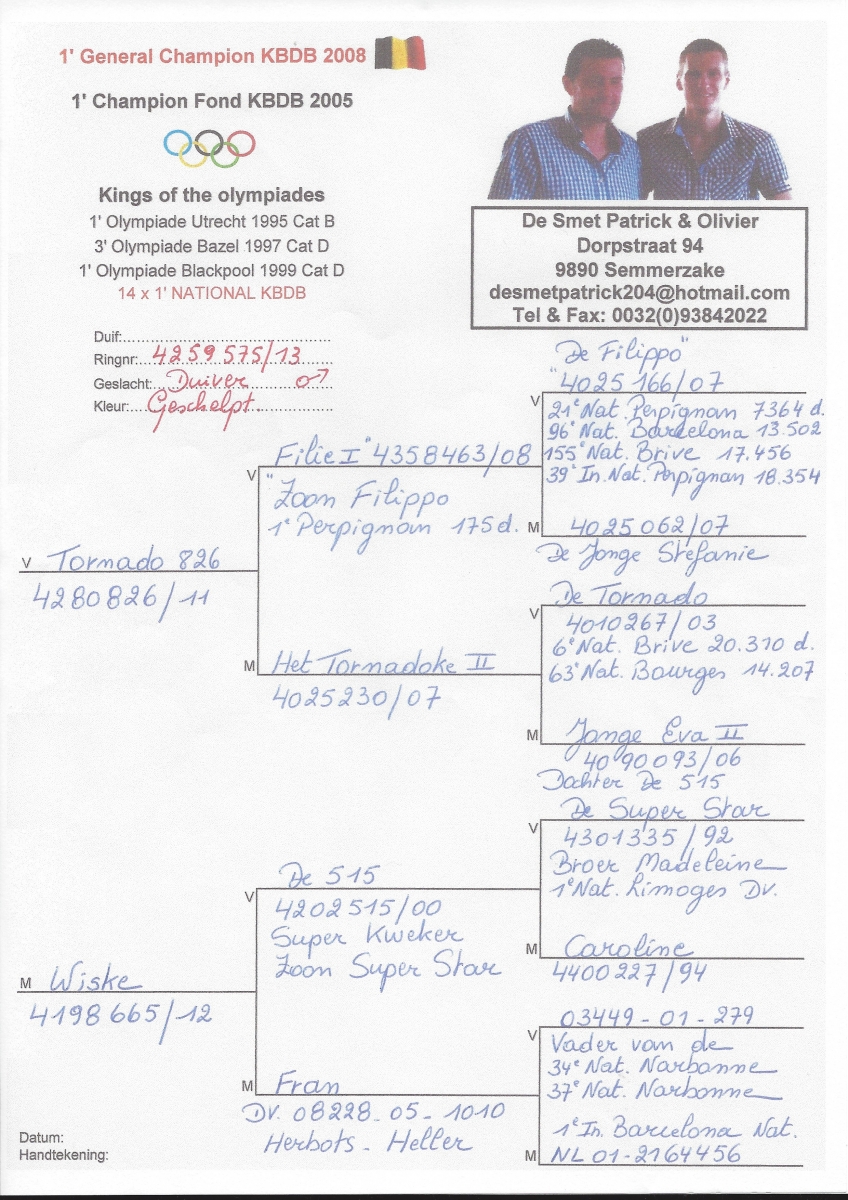 1' General Champion KBDB 2008
1' Champion Fond KBDB 2005
Kings of the olympiades
1' Olympiade Utrecht 1995 Cat B
3' Olympiade Bazel 1997 Cat D
1' Olympiade Blackpool 1999 Cat D
14 x 1' NATIONAL KBDB
De Smet Patrick & Olivier
Dorpstraat 94
9890 Semmerzake
desmetpatrick204@hotmail.com
Tel & Fax: 0032(0)93842022
Duif:
Ringnr: 4259575/13
Geslacht: Duiver ♂
Kleur: Geschelpt.
V Tornado 826
4280826/11
V Filie I" 4358463/08
"Zoon Filippo
1e Perpignan 175 d.
"De Filippo"
V 4025166/07
21e Nat. Perpignan 7364 d.
96e Nat. Barcelona 13.502
155e Nat. Brive 17.456
39e In.Nat. Perpignan 18.354
M 4025062/07
De Jonge Stefanie
M Het Tornadoke II
4025230/07
De Tornado
V 4010267/03
6e Nat. Brive 20.310 d.
63e Nat. Bourges 14.207
M Jonge Eva II
4090093/06
Dochter De 515
M Wiske
4198665/12
De 515
V 4202515/00
Super Kweker
Zoon Super Star
De Super Star
V 4301335/92
Broer Madeleine
1e Nat. Limoges Dv.
M Caroline
4400227/94
M Fran
DV. 08228-05-1010
Herbots - Heller
03449-01-279
V Vader van de
34e Nat. Narbonne
37e Nat. Narbonne
1e In. Barcelona Nat.
M NL 01-2164456
Datum:
Handtekening: